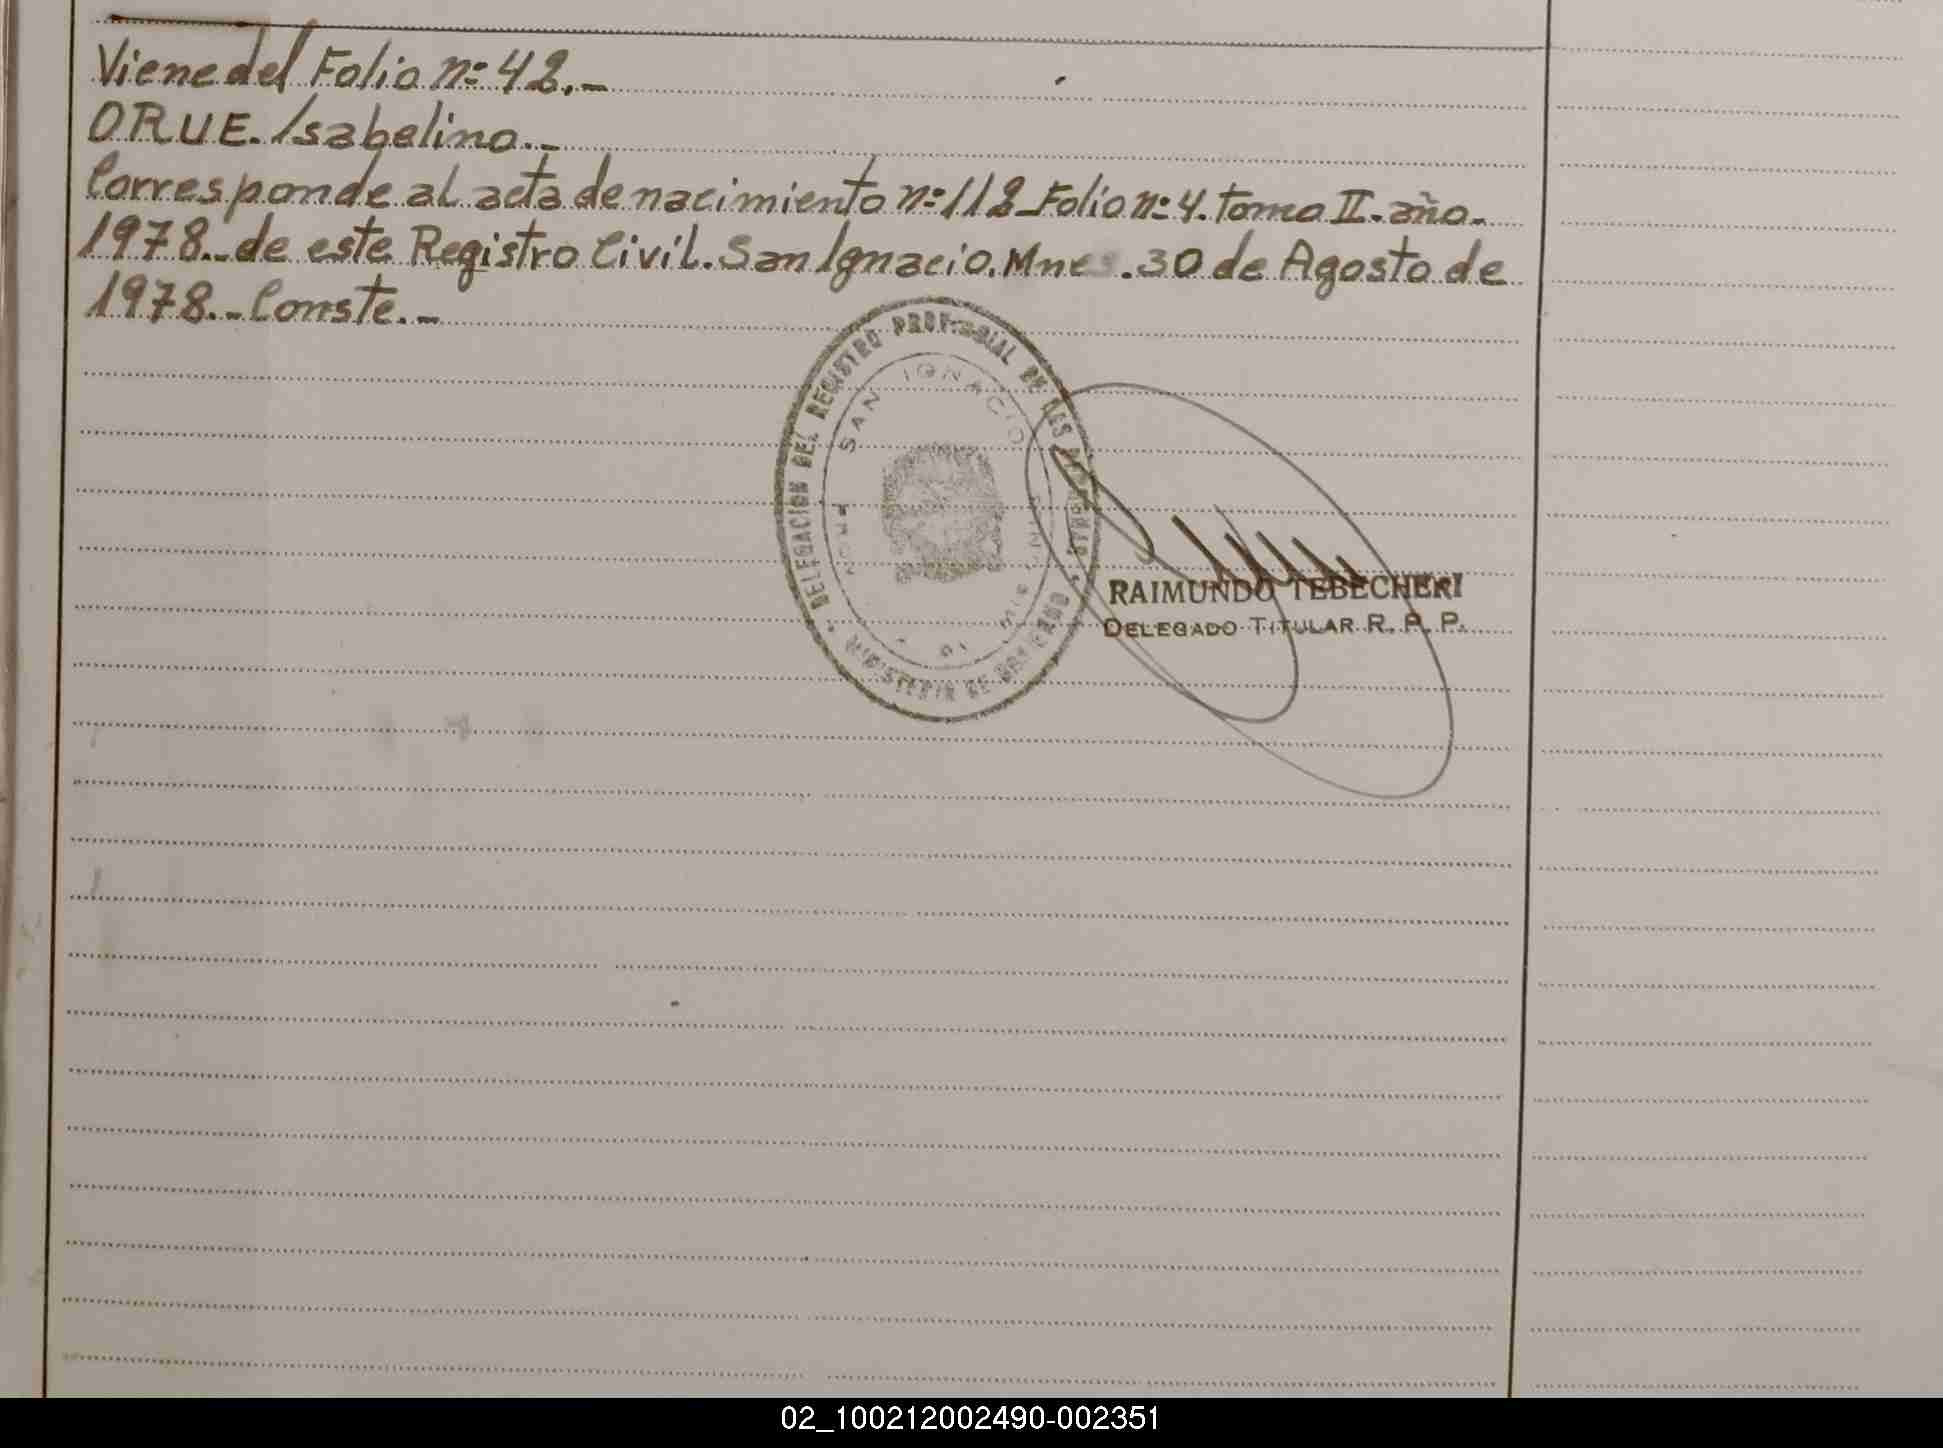 Viene del Folio nº 42.-
ORUE. Isabelino.-
Corresponde al acta de nacimiento nº 112 Folio nº 4. tomo II. año.
1978.- de este Registro Civil. San Ignacio. Mnes. 30 de Agosto de
1978.- Conste.-
DELEGACION DEL REGISTRO PROVINCIAL DE LAS PERSONAS
SAN IGNACIO
MINISTERIO DE GOBIERNO
RAIMUNDO TEBECHERI
DELEGADO TITULAR R. P. P.
02_100212002490-002351